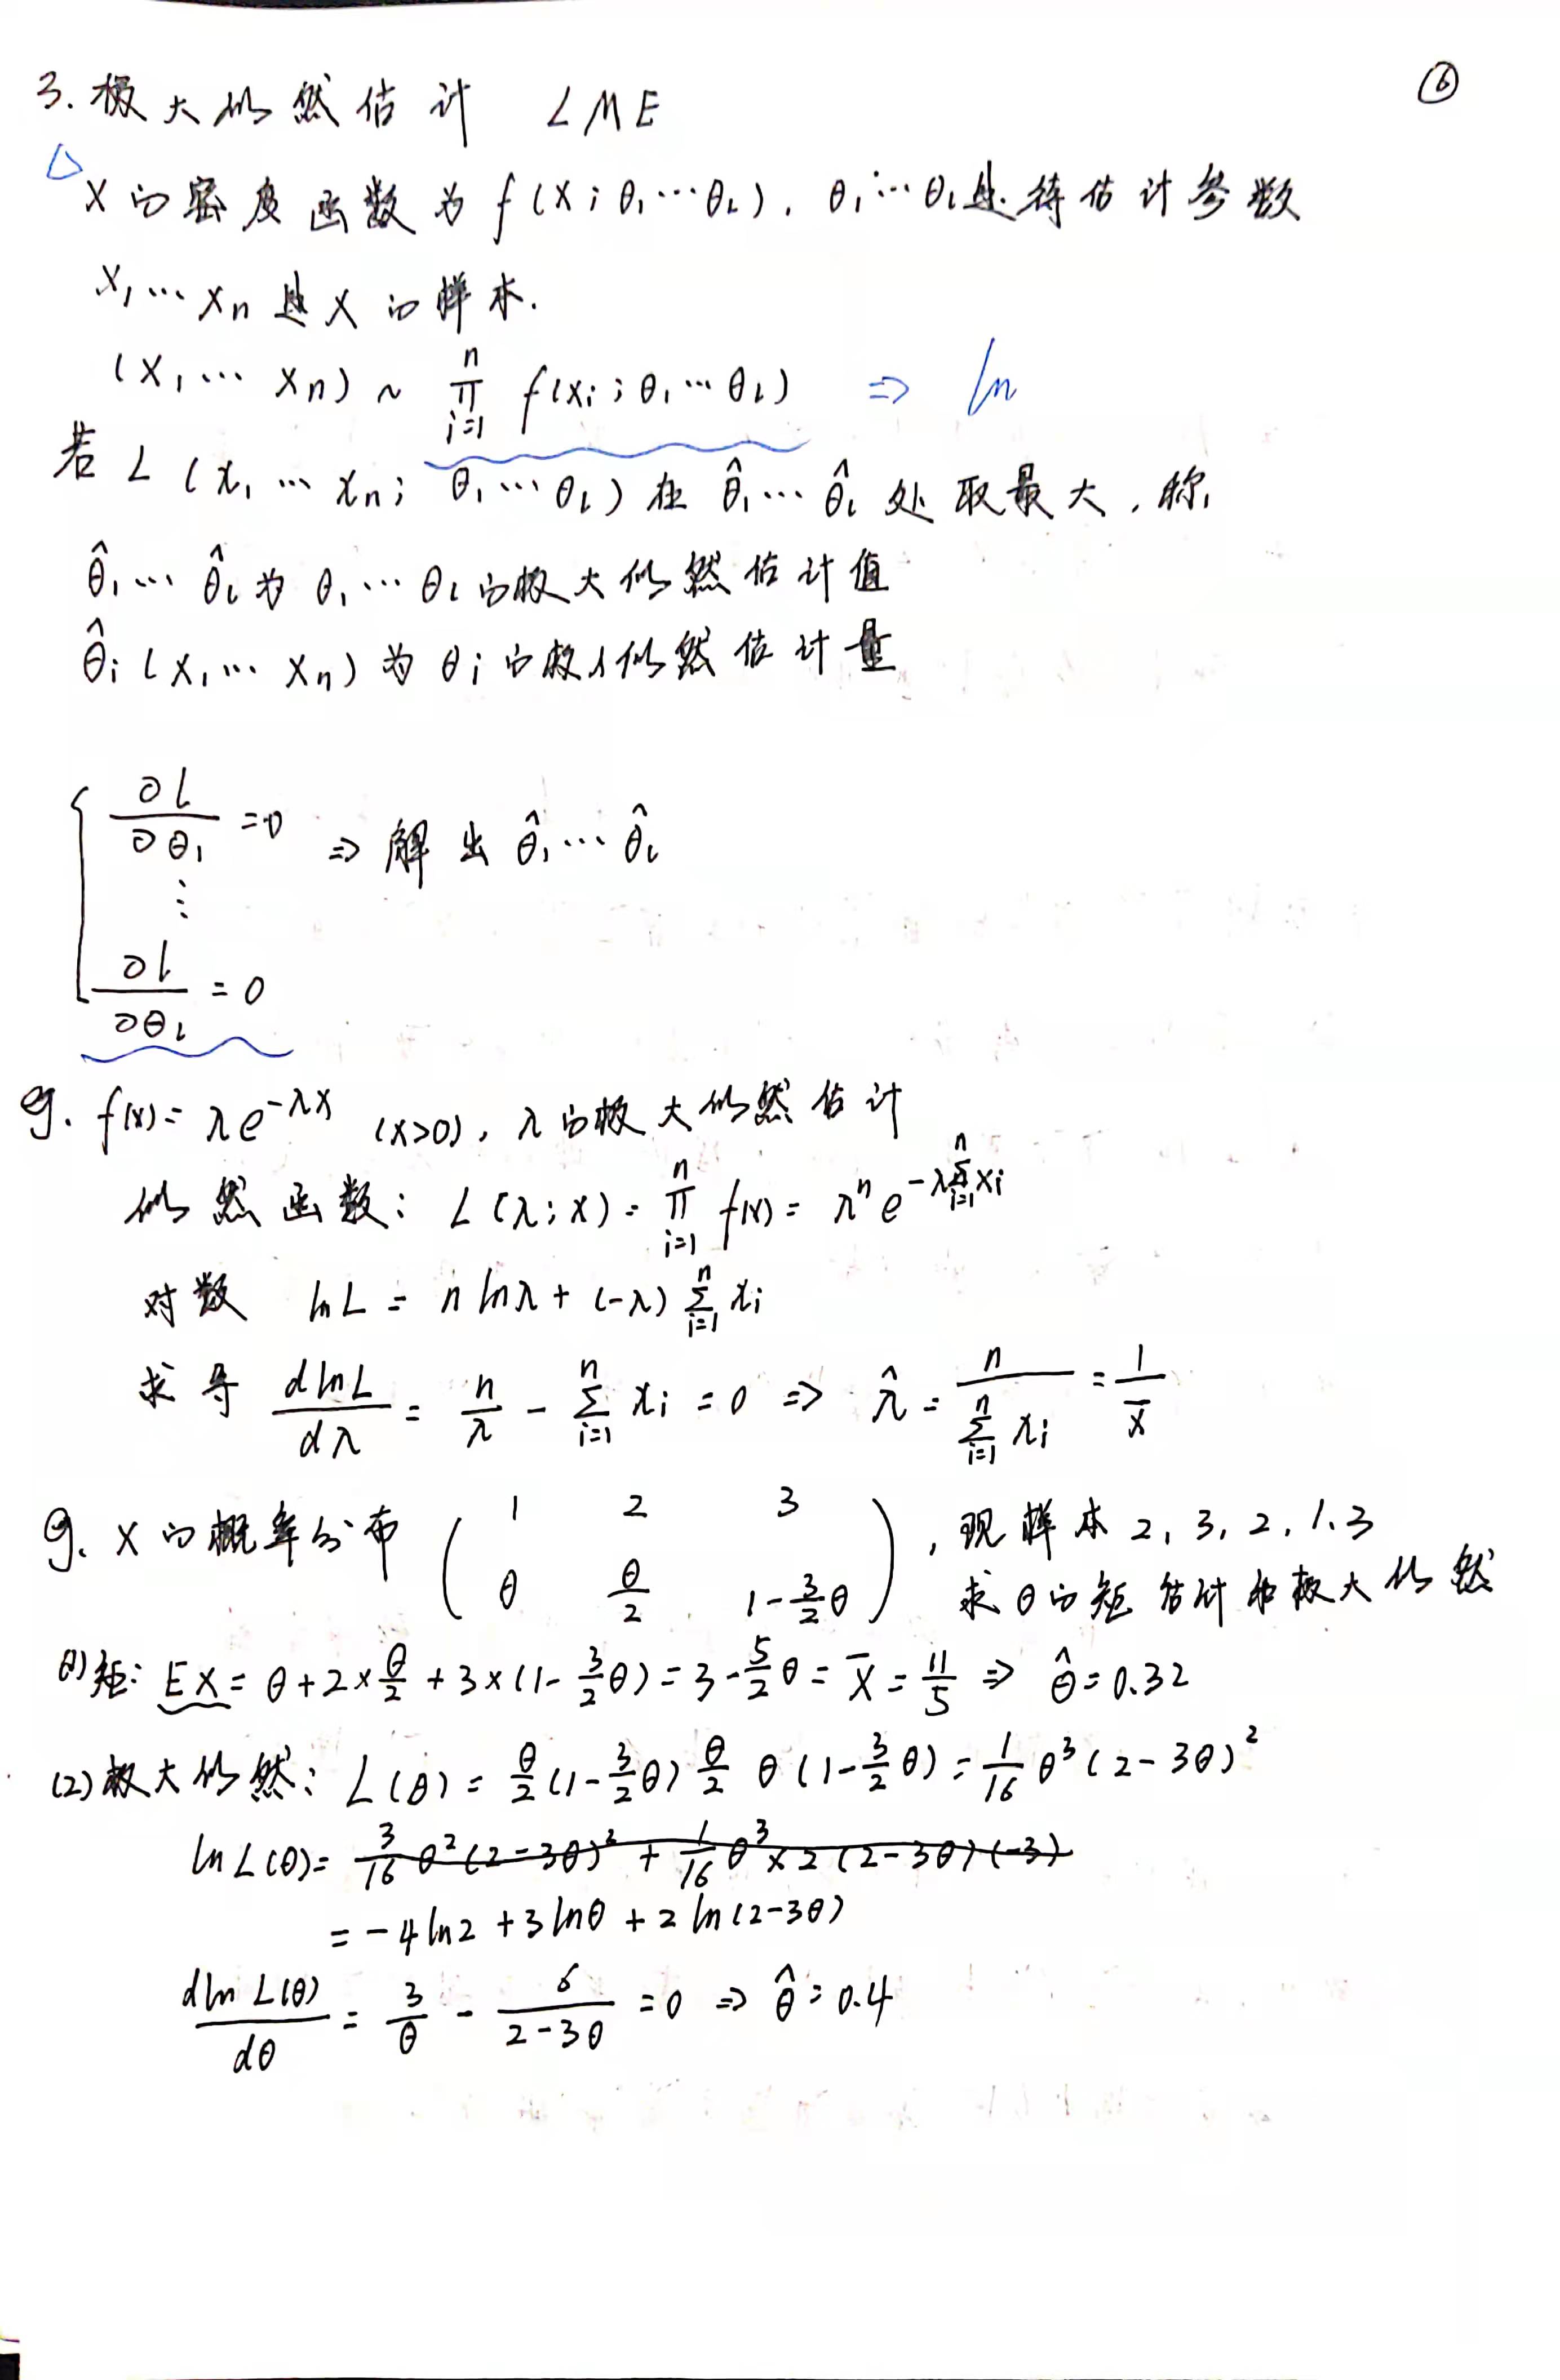 3. 极大似然估计 LME ⑥
△
X的密度函数为 f(X; θ₁⋯θₗ), θ₁⋯θₗ是待估计参数
X₁⋯Xn 是X的样本.
(X₁⋯Xn) ~ ∏_{i=1}^{n} f(xi; θ₁⋯θₗ) ⇒ ln
若 L(x₁⋯xn; θ₁⋯θₗ) 在 θ̂₁⋯θ̂ₗ 处取最大, 称
θ̂₁⋯θ̂ₗ为 θ₁⋯θₗ的极大似然估计值
θ̂i(X₁⋯Xn)为θi的极大似然估计量
{ ∂L/∂θ₁ = 0 ⇒ 解出 θ̂₁⋯θ̂ₗ
⋮
∂L/∂θₗ = 0
eg. f(x) = λe^{-λx} (x>0), λ的极大似然估计
似然函数: L(λ; x) = ∏_{i=1}^{n} f(x) = λⁿ e^{-λ∑_{i=1}^{n} xi}
对数 lnL = n lnλ + (-λ) ∑_{i=1}^{n} xi
求导 dlnL/dλ = n/λ - ∑_{i=1}^{n} xi = 0 ⇒ λ̂ = n/∑_{i=1}^{n} xi = 1/x̄
eg. X的概率分布 (1 2 3; θ θ/2 1-3/2θ), 现样本 2, 3, 2, 1, 3
求θ的矩估计和极大似然
(1)矩: EX = θ + 2×θ/2 + 3×(1-3/2θ) = 3-5/2θ = X̄ = 11/5 ⇒ θ̂ = 0.32
(2)极大似然: L(θ) = θ/2(1-3/2θ) θ/2 θ(1-3/2θ) = 1/16 θ³(2-3θ)²
lnL(θ) = 3/16 θ²(2-3θ)² + 1/16 θ³×2(2-3θ)(-3)
= -4ln2 + 3lnθ + 2ln(2-3θ)
dlnL(θ)/dθ = 3/θ - 6/(2-3θ) = 0 ⇒ θ̂ = 0.4